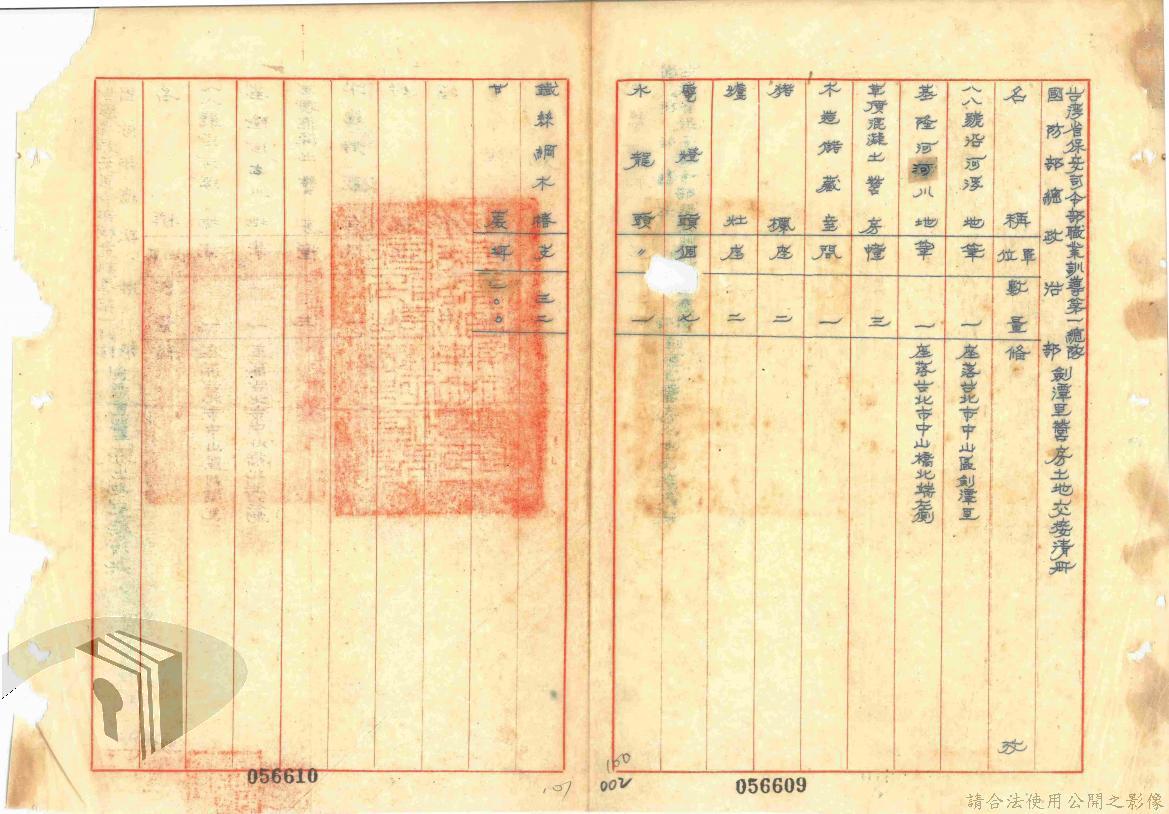 台灣省保安司令部職業訓導第一總隊
國防部總政治部 劍潭里營房土地交接清冊
名稱 單位 數量 備 攷
八八號沿河浮地 筆 一 座落台北市中山區劍潭里
基隆河河川地 筆 一 座落台北市中山橋北端左側
草頂混凝土營房 幢 三
木造儲藏室 間 一
猪欄 座 二
爐灶 座 二
電燈頭 個 七
水龍頭 〃 一
鐵絲網木樁 支 三二
056609
150
002
056610
151
請合法使用公開之影像